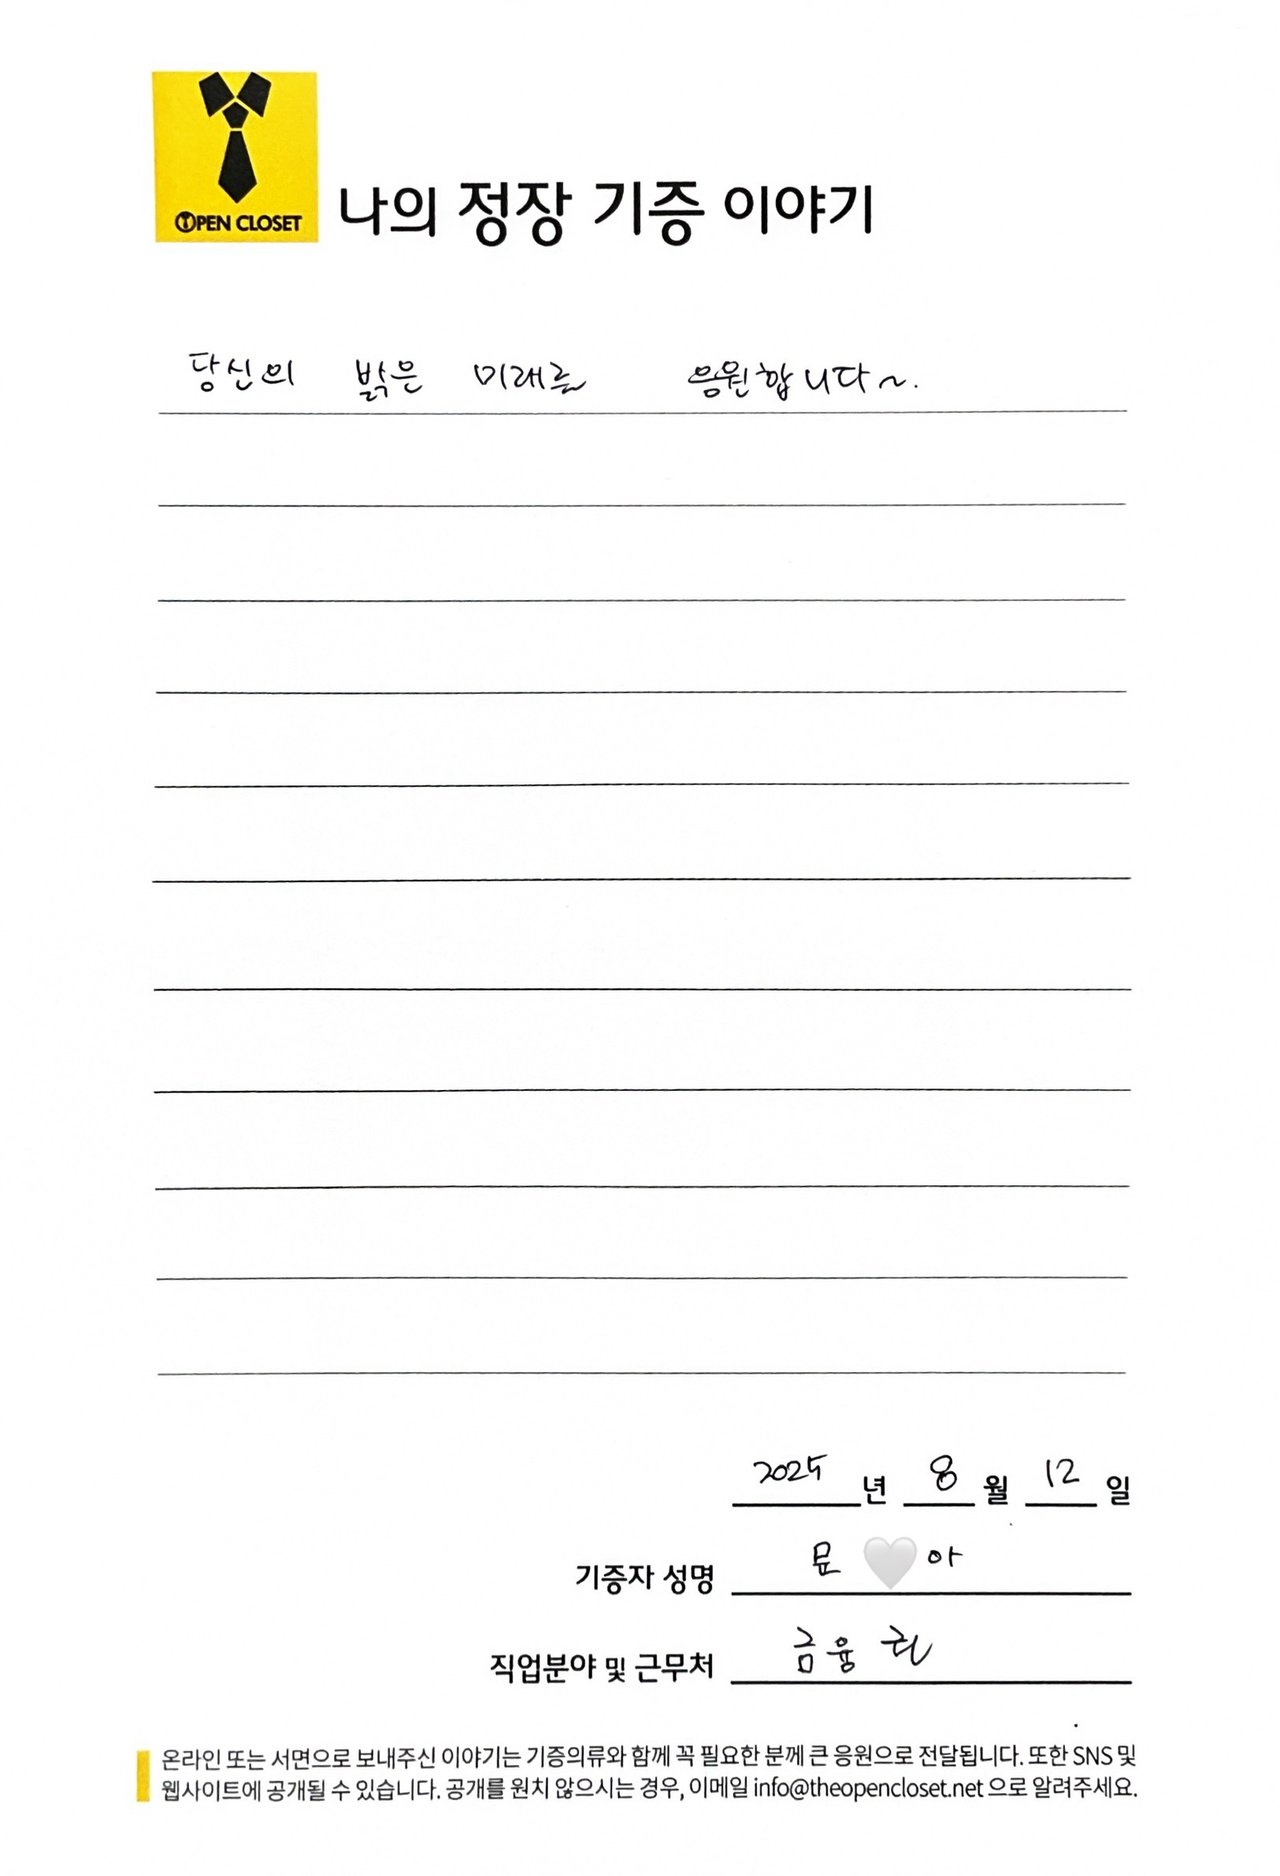 OPEN CLOSET
나의 정장 기증 이야기
당신의 밝은 미래를 응원합니다~.
2025 년 8 월 12 일
기증자 성명 문 🤍 아
직업분야 및 근무처 금융권
온라인 또는 서면으로 보내주신 이야기는 기증의류와 함께 꼭 필요한 분께 큰 응원으로 전달됩니다. 또한 SNS 및
웹사이트에 공개될 수 있습니다. 공개를 원치 않으시는 경우, 이메일 info@theopencloset.net 으로 알려주세요.